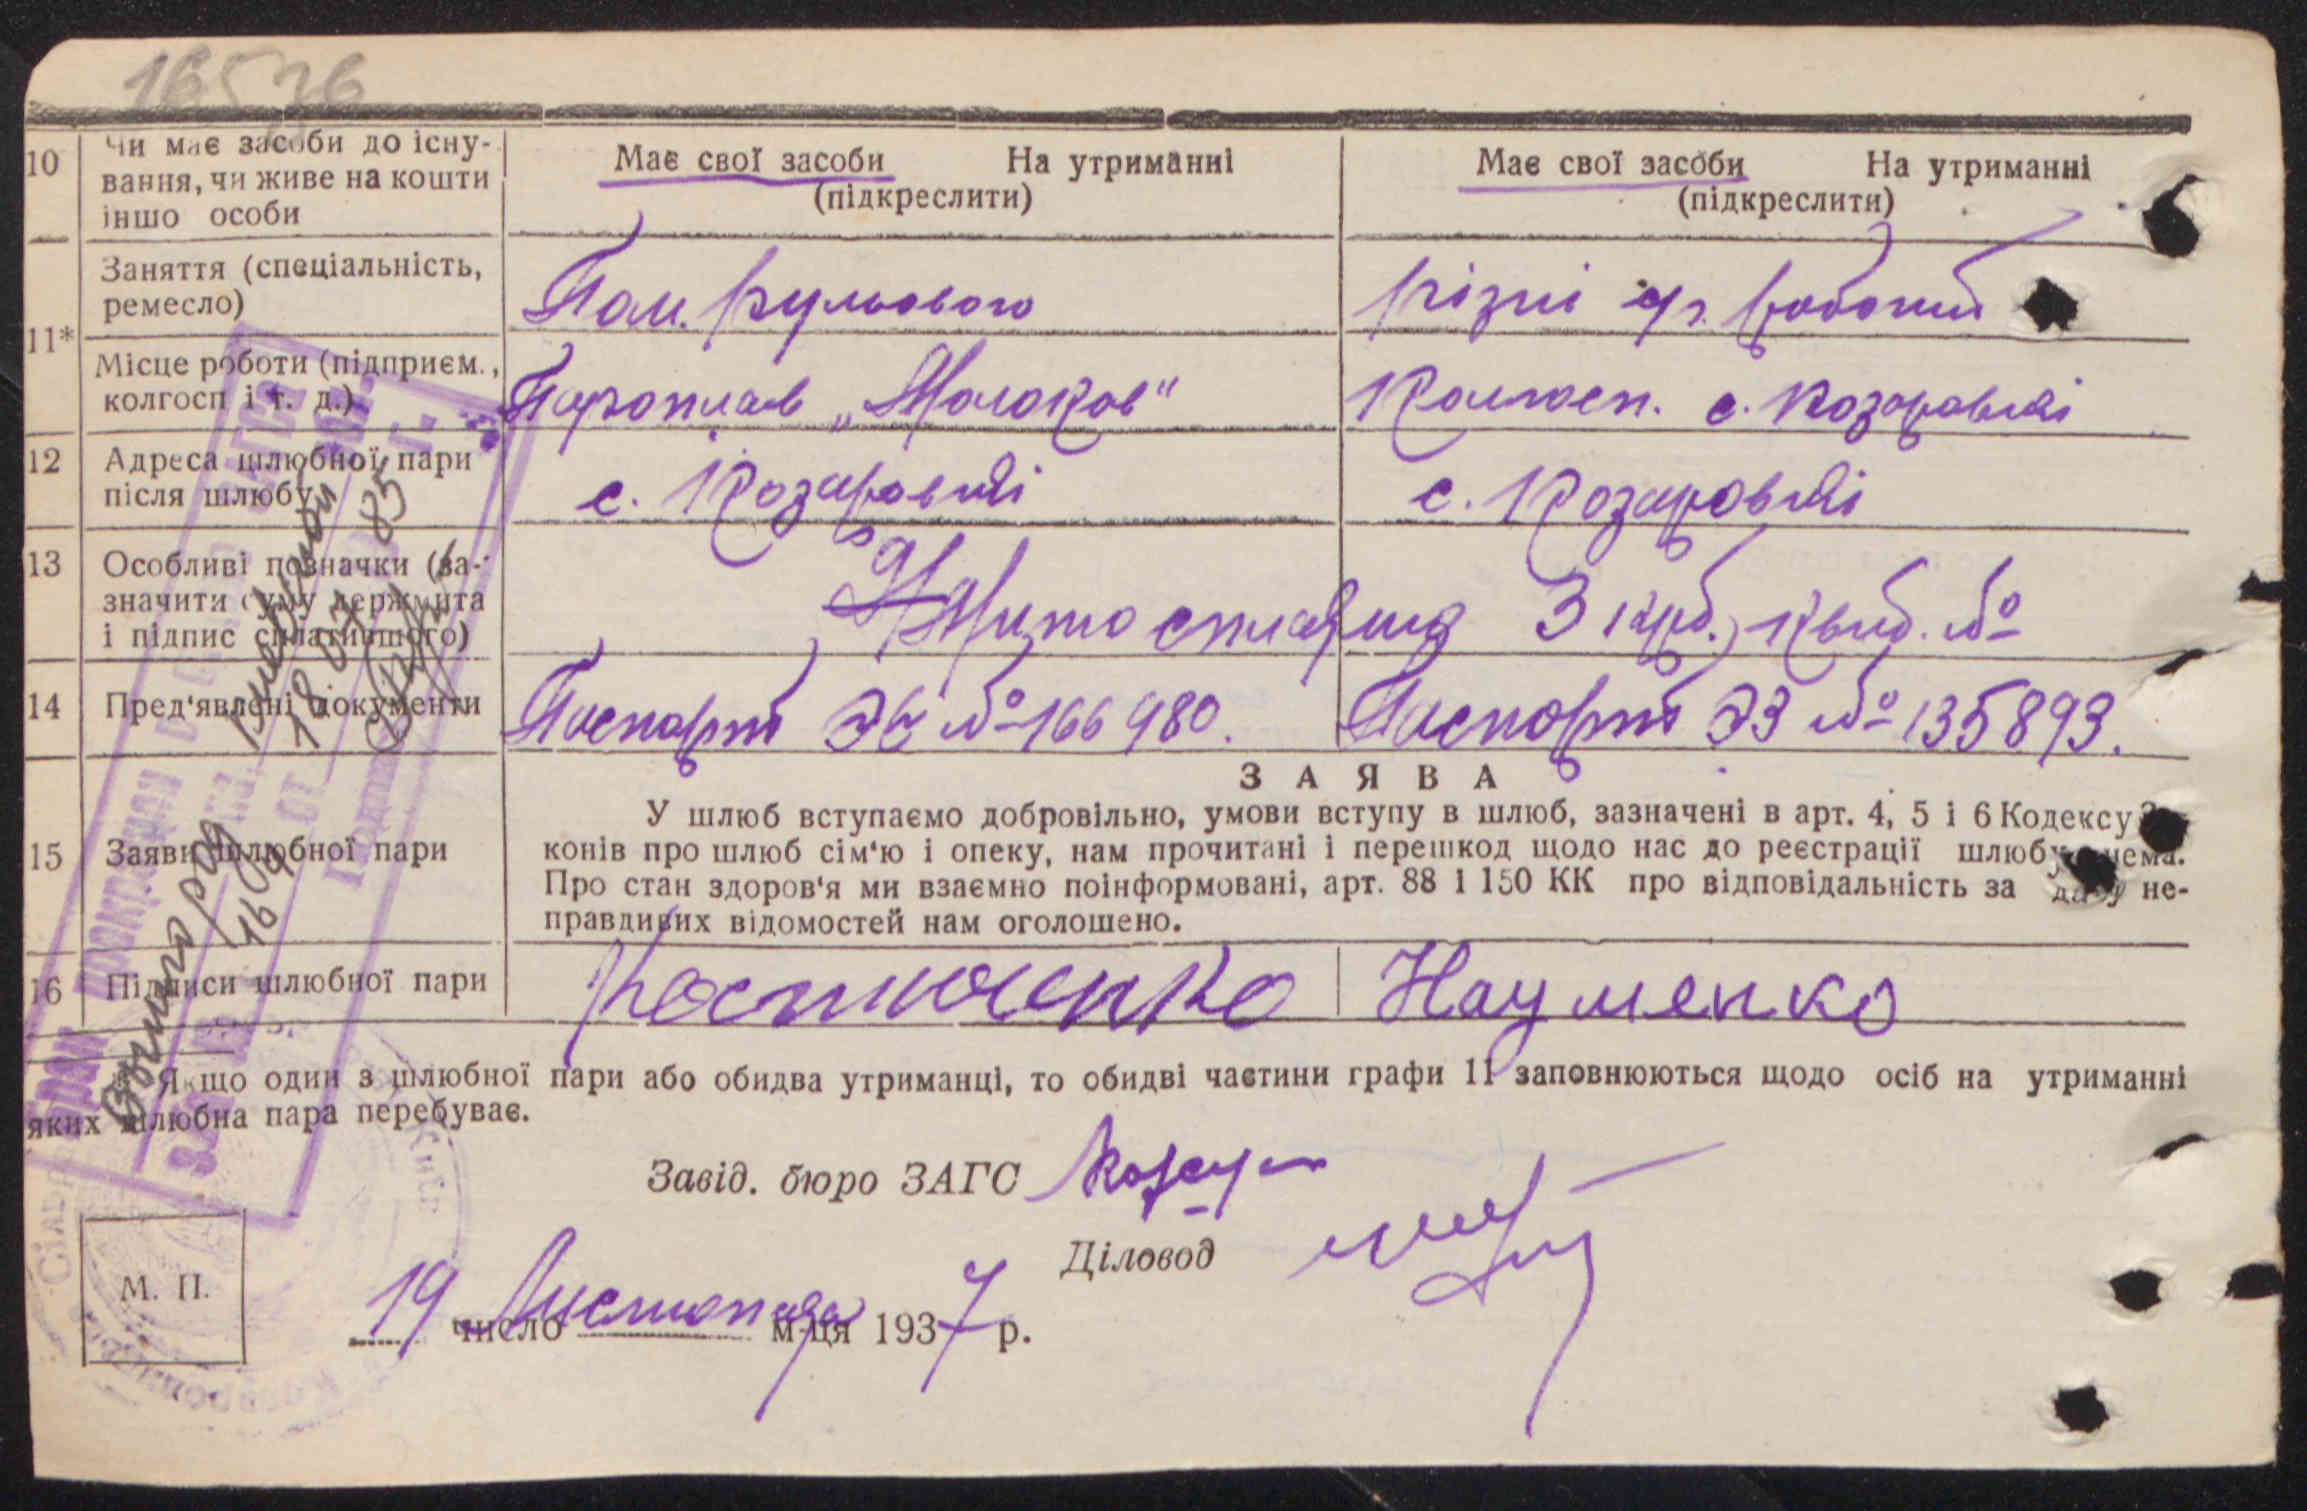 16576
10 Чи має засоби до існу-
вання, чи живе на кошти
іншо особи
Має свої засоби На утриманні
(підкреслити)
Має свої засоби На утриманні
(підкреслити)
11* Заняття (спеціальність,
ремесло)
Пом. рульового
різні
Місце роботи (підприєм.,
колгосп і т. д.)
Пароплав „Молоков"
Колгосп. с. Козаровичі
12 Адреса шлюбної пари
після шлюбу
с. Козаровичі
с. Козаровичі
13 Особливі позначки (за-
значити суму держмита
і підпис сплатившого)
Мито 3 крб. квит. №
14 Пред'явлені документи
Паспорт № 166980.
Паспорт ЭЗ № 135893.
15 Заяви шлюбної пари
ЗАЯВА
У шлюб вступаємо добровільно, умови вступу в шлюб, зазначені в арт. 4, 5 і 6 Кодексу За-
конів про шлюб сім'ю і опеку, нам прочитані і перешкод щодо нас до реєстрації шлюбу нема.
Про стан здоров'я ми взаємно поінформовані, арт. 88 і 150 КК про відповідальність за дачу не-
правдивих відомостей нам оголошено.
16 Підписи шлюбної пари
Костюченко
Науменко
Якщо один з шлюбної пари або обидва утриманці, то обидві частини графи 11 заповнюються щодо осіб на утриманні
яких шлюбна пара перебуває.
Завід. бюро ЗАГС
Діловод
М. П.
19 число Листопада м-ця 1937 р.